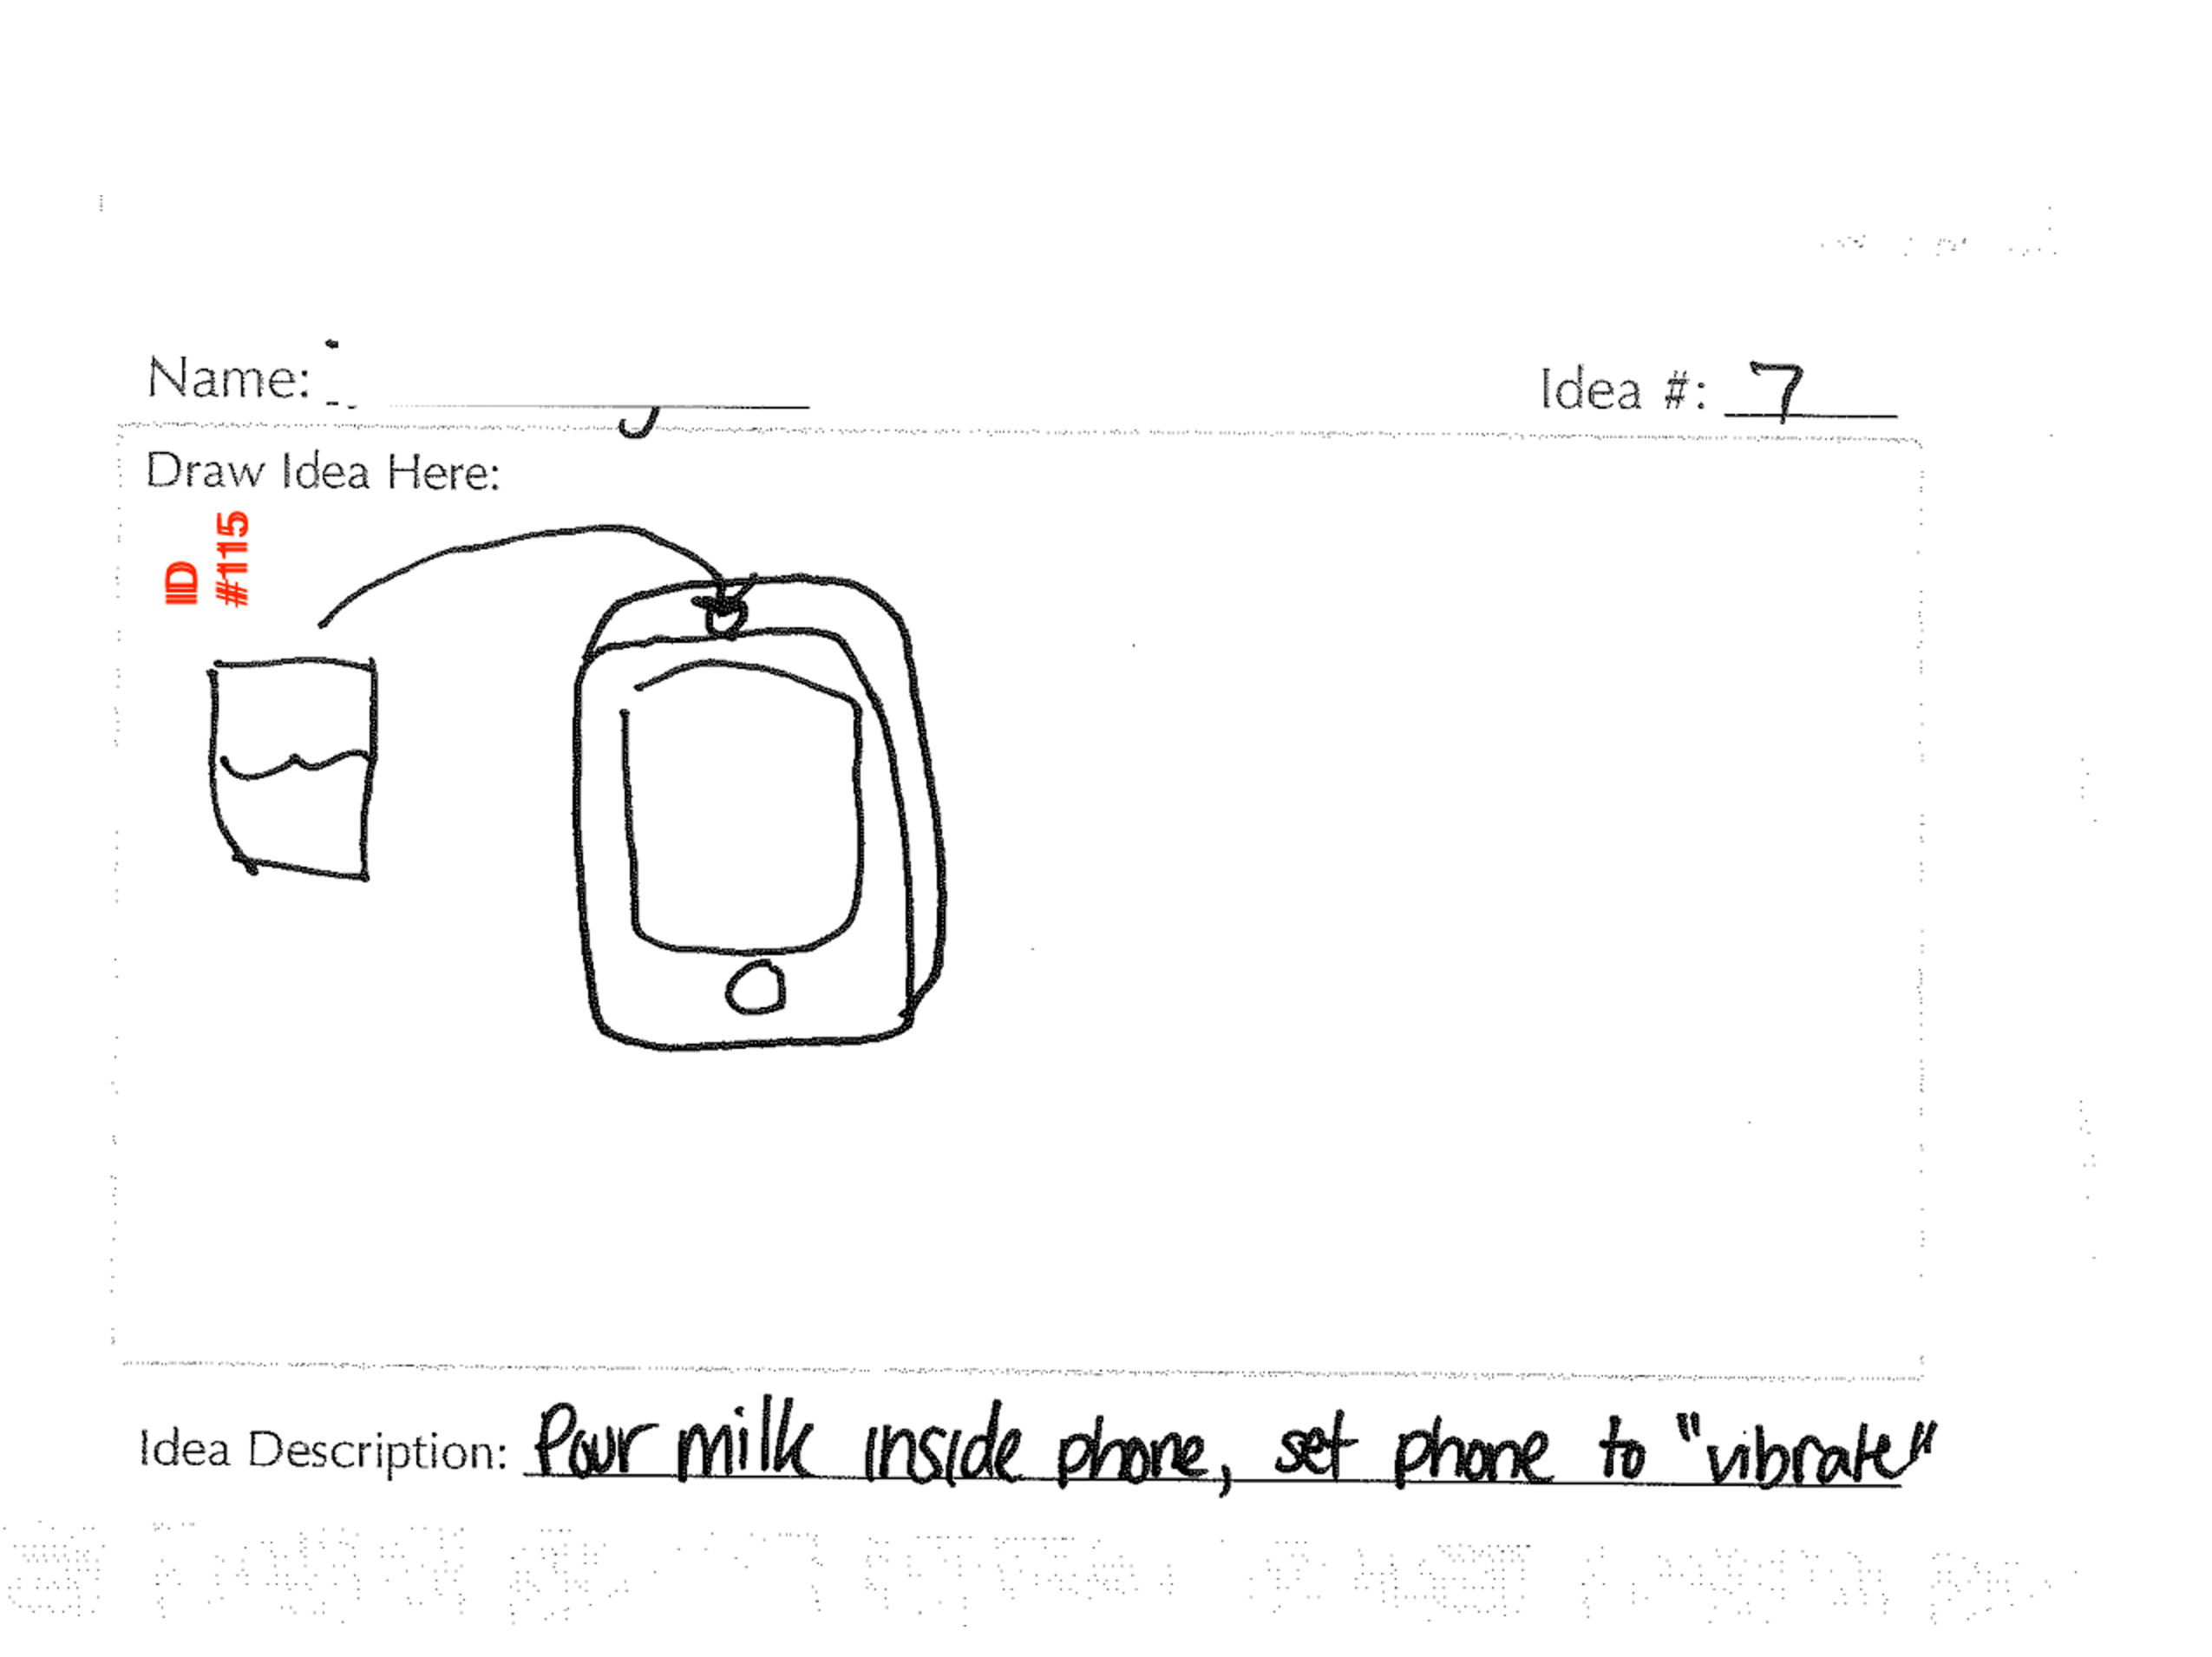 Name:
Idea #: 7
Draw Idea Here:
ID
#115
Idea Description: Pour milk inside phone, set phone to "vibrate"